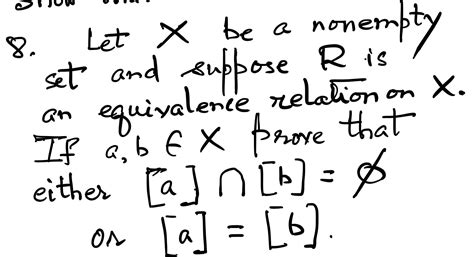 8. Let X be a nonempty
set and suppose R is
an equivalence relation on X.
If a, b ∈ X prove that
either [a] ∩ [b] = ∅
or [a] = [b].